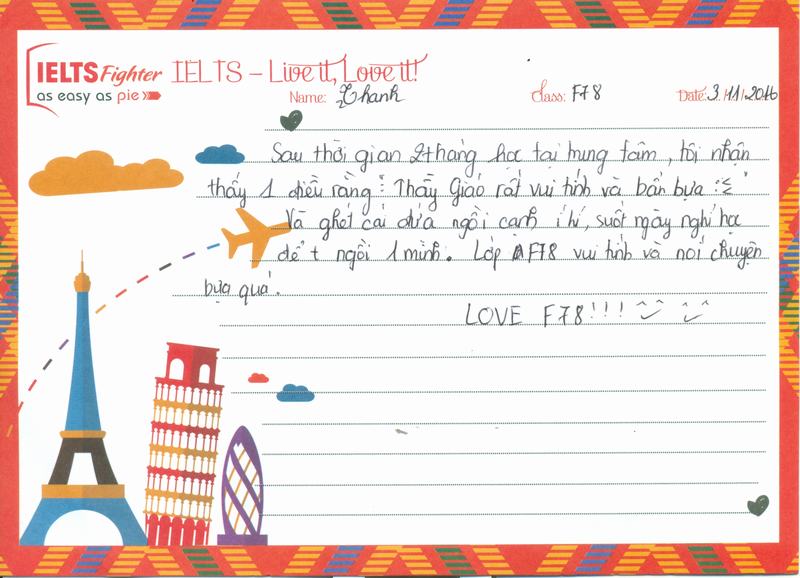 IELTS Fighter IELTS – Live it, Love it!
as easy as pie
Name: Thanh Class: F78 Date: 3/11/2016
Sau thời gian 2 tháng học tại trung tâm, tôi nhận
thấy 1 điều rằng : Thầy Giáo rất vui tính và bẩn bựa
Và ghét cái đứa ngồi cạnh í hí, suốt ngày nghỉ học
để t ngồi 1 mình. Lớp F78 vui tính và nói chuyện
bựa quá.
LOVE F78!!!